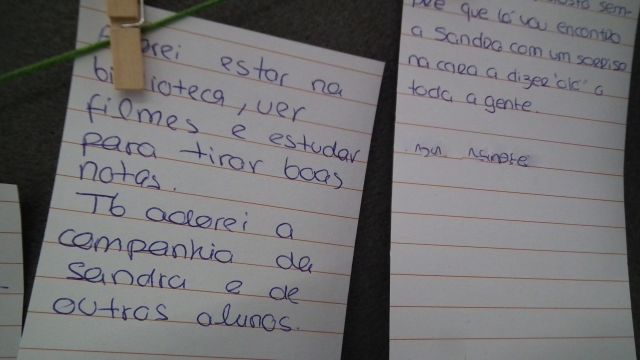 estar na
biblioteca, ver
filmes e estudar
para tirar boas
notas.
Tb adorei a
companhia da
Sandra e de
outros alunos.
que lá vou encontro
a Sandra com um sorriso
na cara a dizer "olá" a
toda a gente.